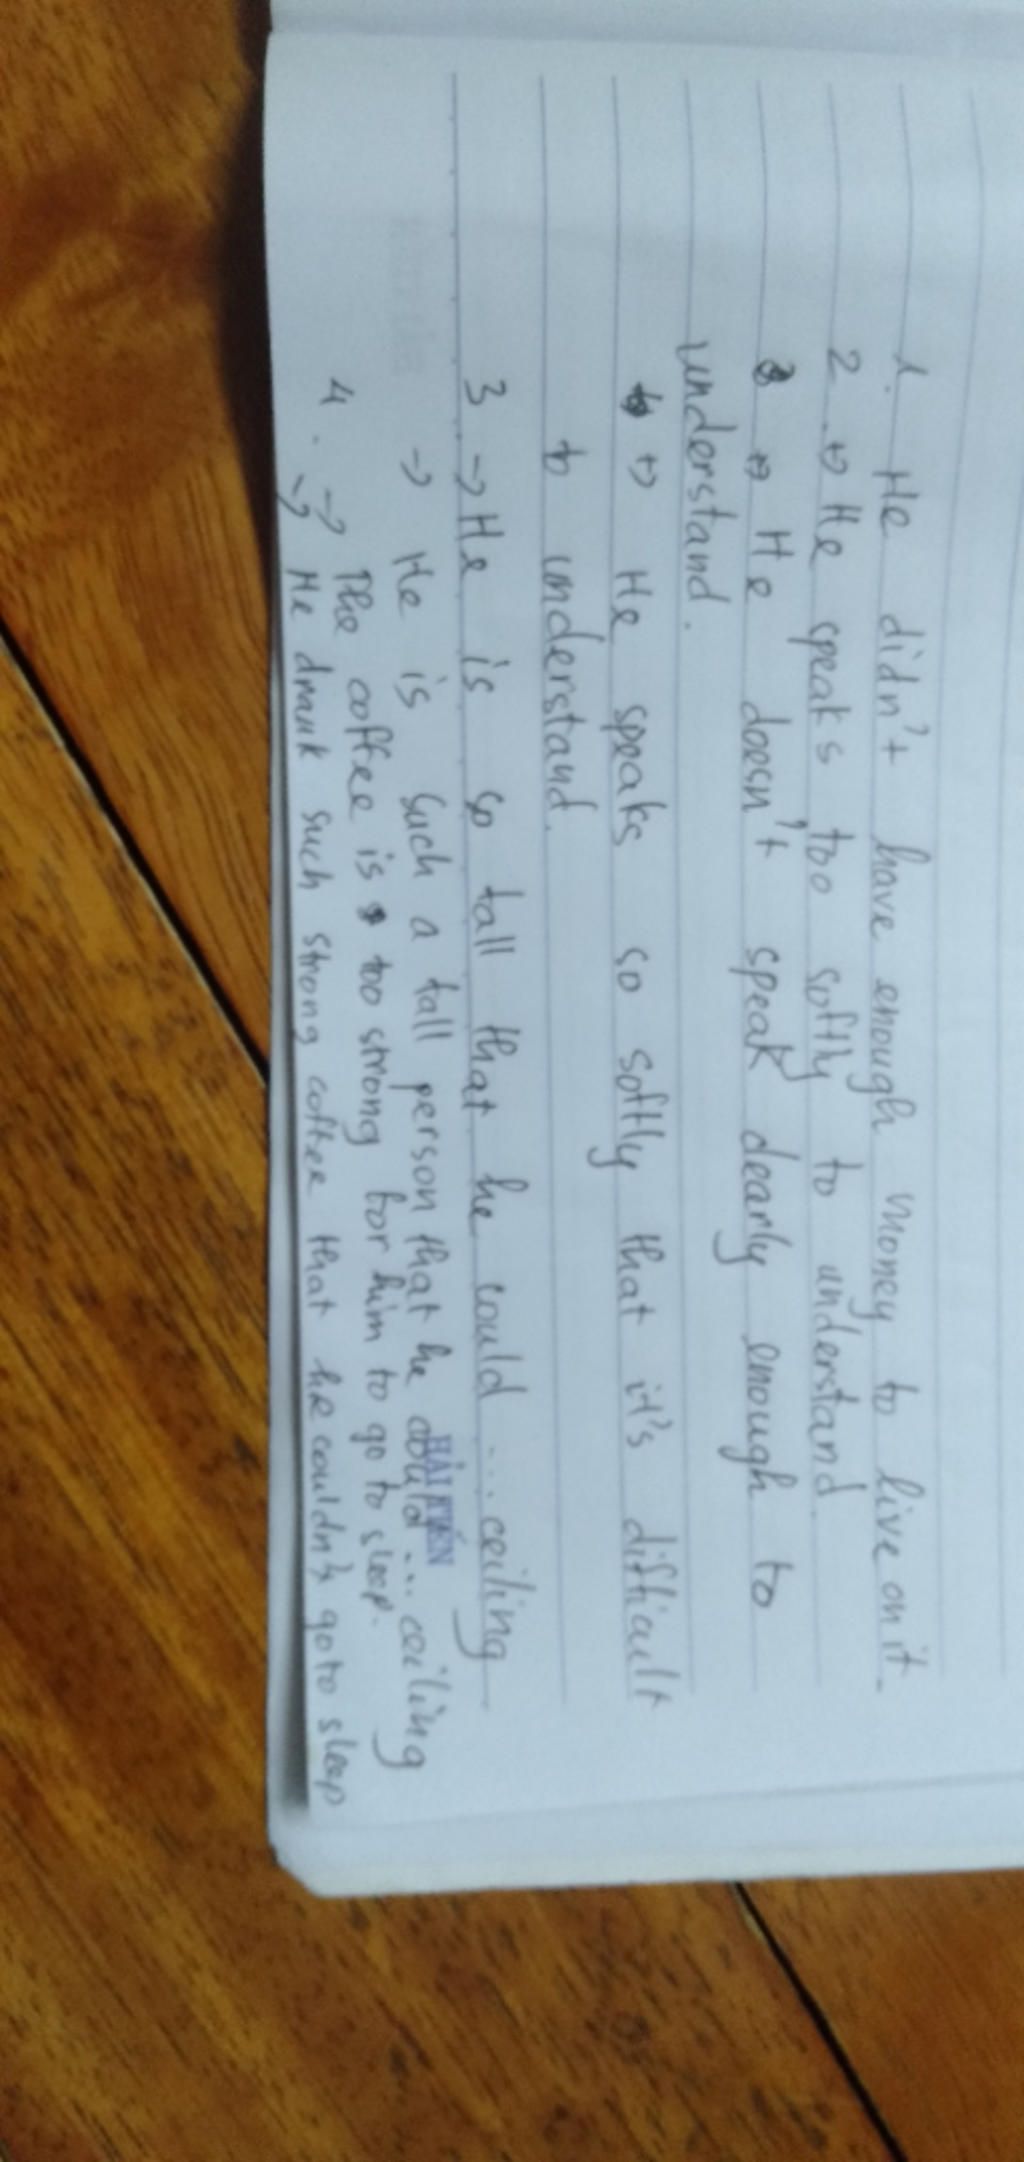 1. He didn't have enough money to live on it.
2. ↔ He speaks too softly to understand.
↔ He doesn't speak clearly enough to
understand.
↔ He speaks so softly that it's difficult
to understand.
3 → He is so tall that he could ... ceiling
→ He is such a tall person that he could ... ceiling
HẢI TIẾN
4. → The coffee is too strong for him to go to sleep.
→ He drank such strong coffee that he couldn't go to sleep